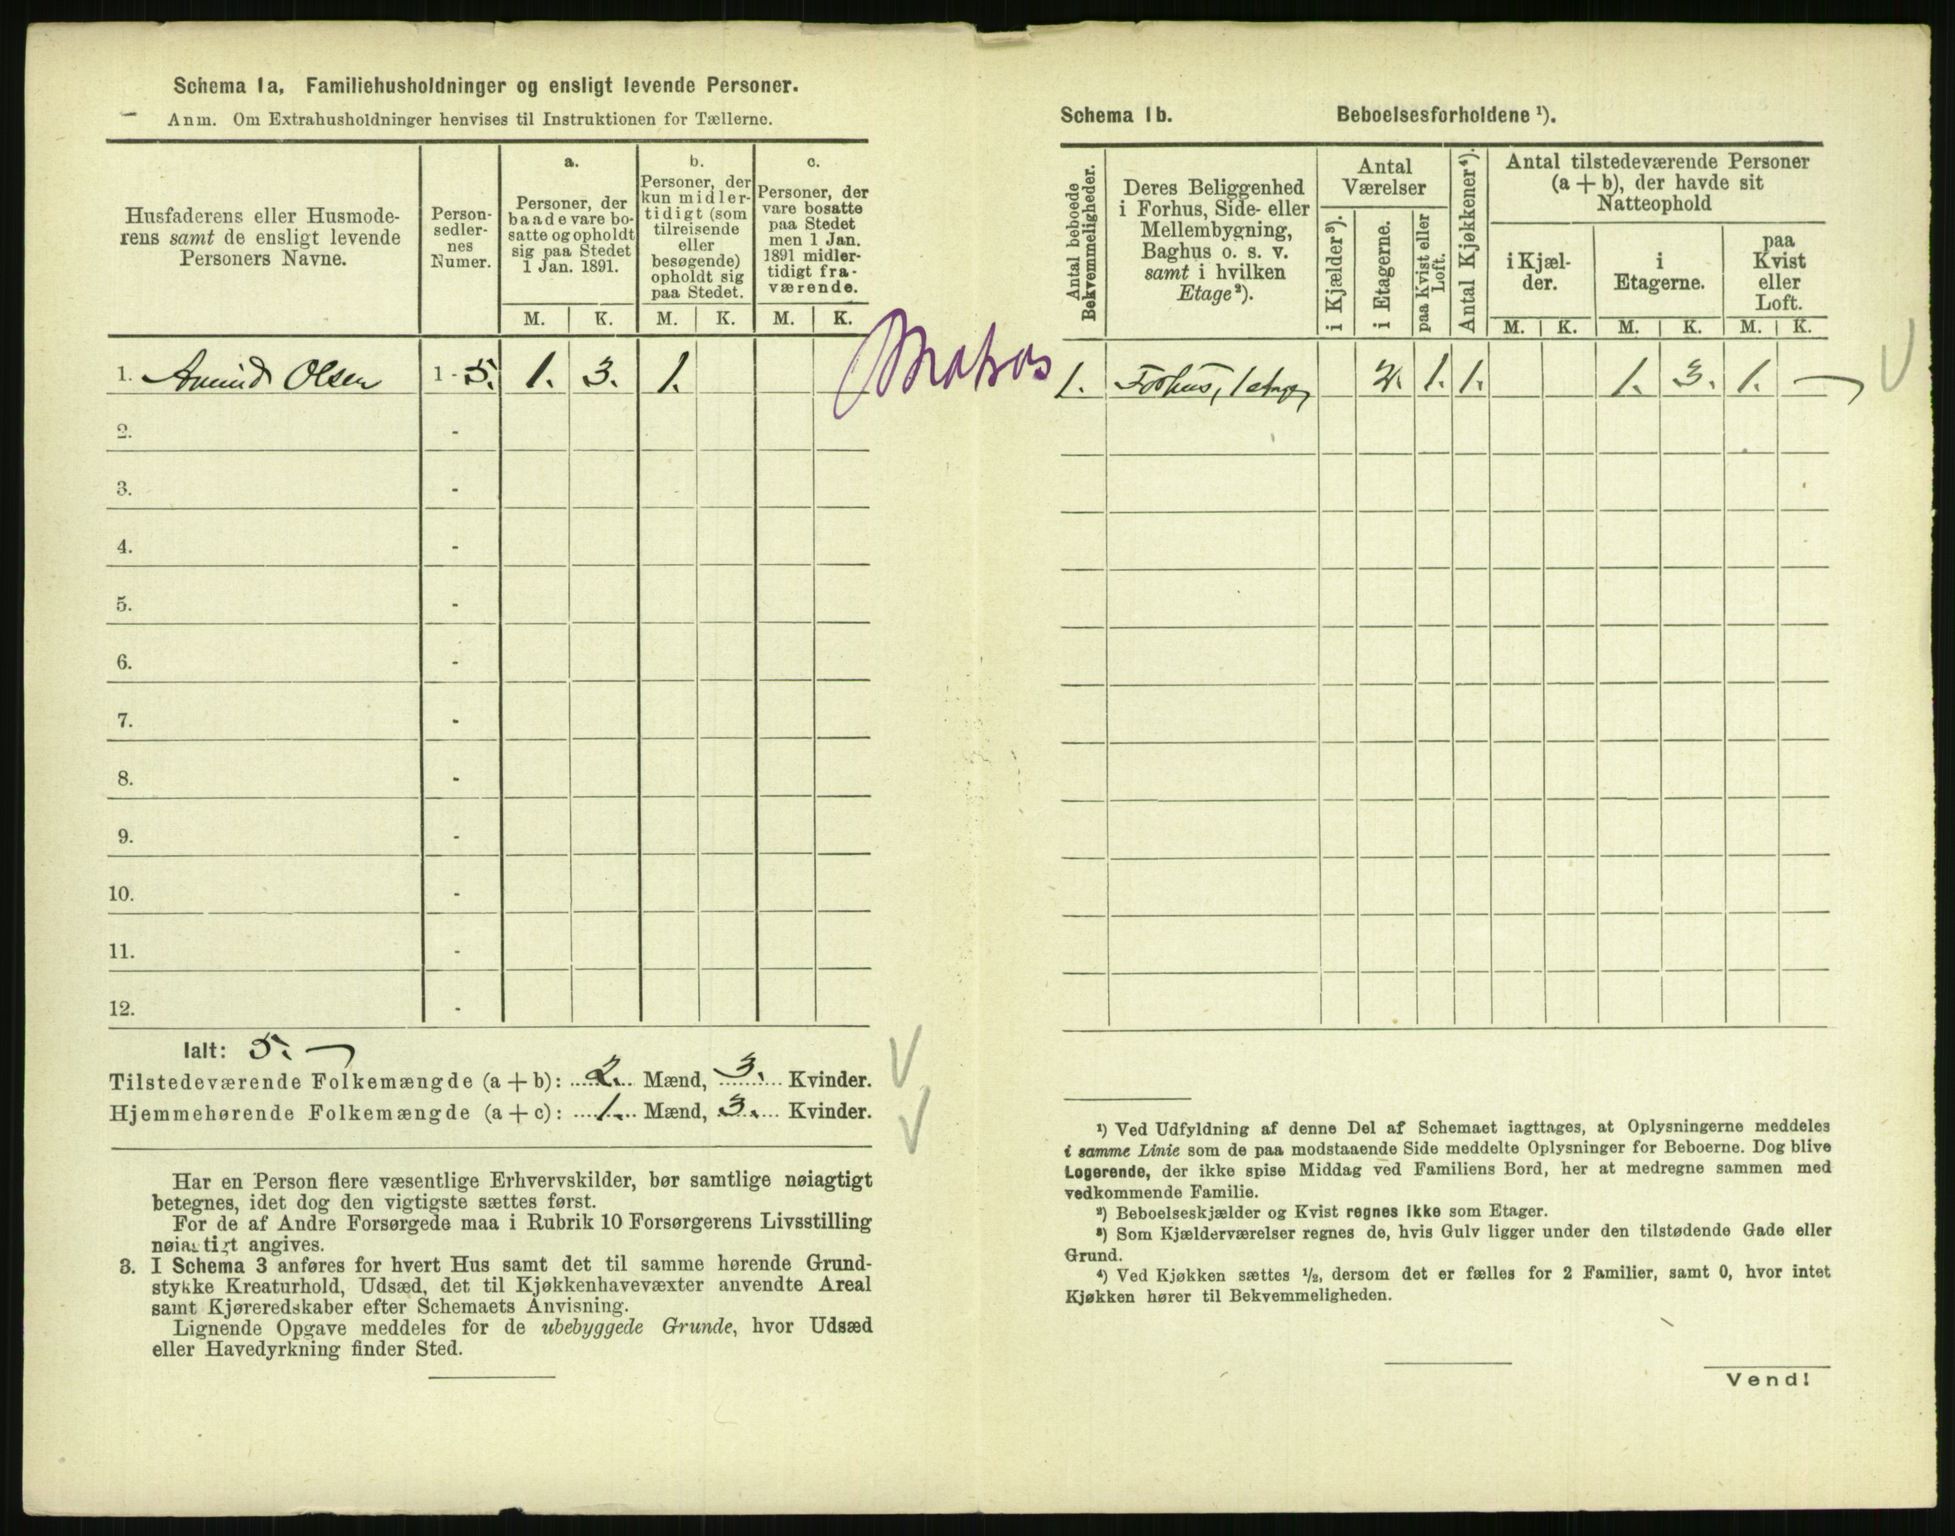 Schema 1a, Familiehusholdninger og ensligt levende Personer.
Anm. Om Extrahusholdninger henvises til Instruktionen for Tællerne.
Husfaderens eller Husmode-
rens samt de ensligt levende
Personers Navne.
Person-
sedler-
nes
Numer.
a.
Personer, der
baade vare bo-
satte og opholdt
sig paa Stedet
1 Jan. 1891.
b.
Personer, der
kun midler-
tidigt (som
tilreisende
eller
besøgende)
opholdt sig
paa Stedet.
c.
Personer, der
vare bosatte
paa Stedet
men 1 Jan.
1891 midler-
tidigt fra-
værende.
M. K. M. K. M. K.
1. Amund Olsen 1 - 5. 1. 3. 1.
2. -
3. -
4. -
5. -
6. -
7. -
8. -
9. -
10. -
11. -
12. -
Ialt: 5.
Tilstedeværende Folkemængde (a + b): 2. Mænd, 3. Kvinder.
Hjemmehørende Folkemængde (a + c): 1. Mænd, 3. Kvinder.
Har en Person flere væsentlige Erhvervskilder, bør samtlige nøiagtigt
betegnes, idet dog den vigtigste sættes først.
For de af Andre Forsørgede maa i Rubrik 10 Forsørgerens Livsstilling
nøiagtigt angives.
3. I Schema 3 anføres for hvert Hus samt det til samme hørende Grund-
stykke Kreaturhold, Udsæd, det til Kjøkkenhavevæxter anvendte Areal
samt Kjøreredskaber efter Schemaets Anvisning.
Lignende Opgave meddeles for de ubebyggede Grunde, hvor Udsæd
eller Havedyrkning finder Sted.
Schema 1b. Beboelsesforholdene ¹).
Antal beboede
Bekvemmeligheder.
Deres Beliggenhed
i Forhus, Side- eller
Mellembygning,
Baghus o. s. v.
samt i hvilken
Etage²).
Antal
Værelser
i Kjælder³).
i Etagerne.
paa Kvist eller
Loft.
Antal Kjøkkener⁴).
Antal tilstedeværende Personer
(a + b), der havde sit
Natteophold
i Kjæl-
der.
i
Etagerne.
paa
Kvist
eller
Loft.
M. K. M. K. M. K.
1. Forhus, 1 etage 2. 1. 1. 1. 3. 1. —
¹) Ved Udfyldning af denne Del af Schemaet iagttages, at Oplysningerne meddeles
i samme Linie som de paa modstaaende Side meddelte Oplysninger for Beboerne. Dog blive
Logerende, der ikke spise Middag ved Familiens Bord, her at medregne sammen med
vedkommende Familie.
²) Beboelseskjælder og Kvist regnes ikke som Etager.
³) Som Kjælderværelser regnes de, hvis Gulv ligger under den tilstødende Gade eller
Grund.
⁴) Ved Kjøkken sættes ½, dersom det er fælles for 2 Familier, samt 0, hvor intet
Kjøkken hører til Bekvemmeligheden.
Vend!